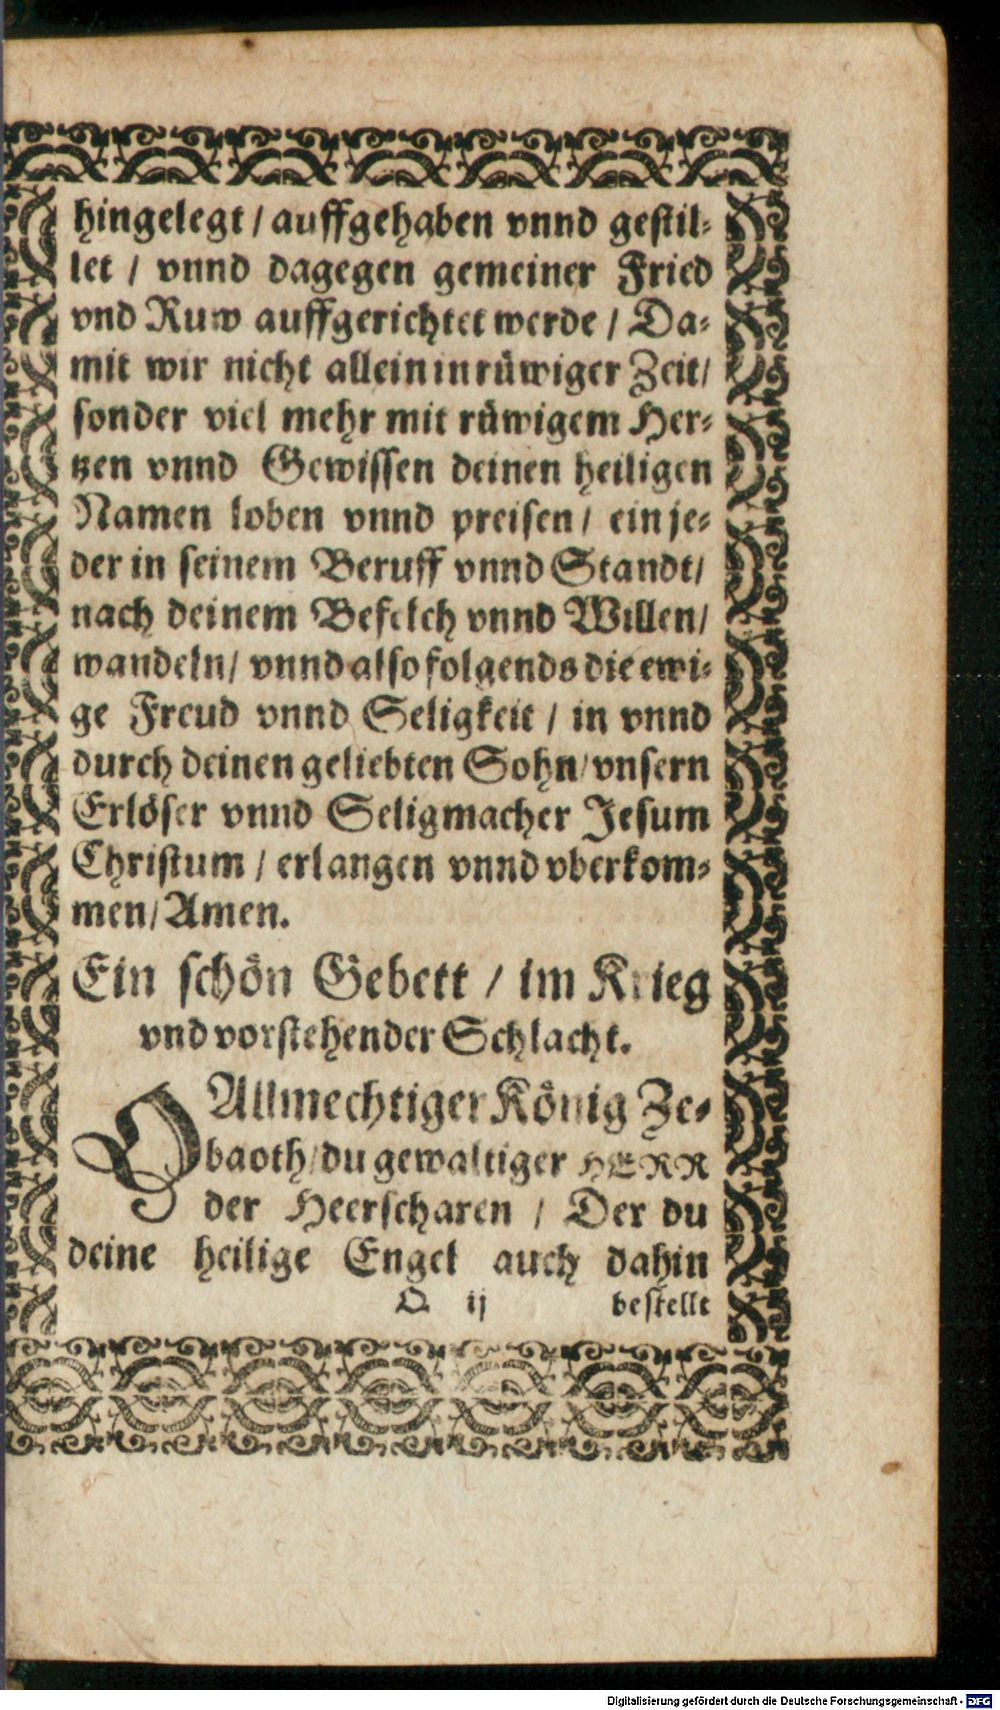 hingelegt / auffgehaben vnnd gestil⸗
let / vnnd dagegen gemeiner Fried
vnd Ruw auffgerichtet werde / Da⸗
mit wir nicht allein in rüwiger Zeit/
sonder viel mehr mit rüwigem Her⸗
tzen vnnd Gewissen deinen heiligen
Namen loben vnnd preisen / ein je⸗
der in seinem Beruff vnnd Standt/
nach deinem Befelch vnnd Willen/
wandeln/ vnnd also folgends die ewi⸗
ge Freud vnnd Seligkeit / in vnnd
durch deinen geliebten Sohn/ vnsern
Erlöser vnnd Seligmacher Jesum
Christum / erlangen vnnd vberkom⸗
men/ Amen.
Ein schön Gebett / im Krieg
vnd vorstehender Schlacht.
O Allmechtiger König Ze⸗
baoth/ du gewaltiger HERR
der Heerscharen / Der du
deine heilige Engel auch dahin
Q ij bestellt
Digitalisierung gefördert durch die Deutsche Forschungsgemeinschaft - DFG